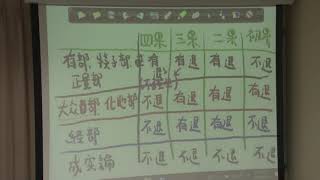 四果 三果 二果 初果
有部 犢子部 有退 有退 有退 不退
正量部
大众部 化地部 不退 有退 有退 有退
经部 不退 有退 有退 不退
成实論 不退 不退 不退 不退